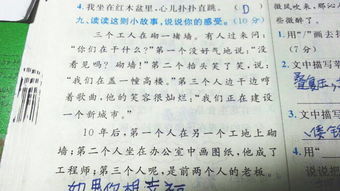 4. 我坐在红木盆里,心儿扑扑直跳。 (D)
九、读读这则小故事,说说你的感受。(10分)
三个工人在砌一堵墙。有人过来问:
“你们在干什么?”第一个没好气地说:“没
看见吗?砌墙!”第二个抬头笑了笑,说:
“我们在盖一幢高楼。”第三个人边干边哼
着歌曲,他的笑容很灿烂:“我们正在建设
一个新城市。”
10年后,第一个人在另一个工地上砌
墙;第二个人坐在办公室中画图纸,他成了
工程师;第三个人呢,是前两个人的老板。
如果你想幸福
微风吹来,那沁
些微醉了。
2. 用“/”画去括
(7分)
3. 文中描写草
3. 文中描写
4. 用“
说说把